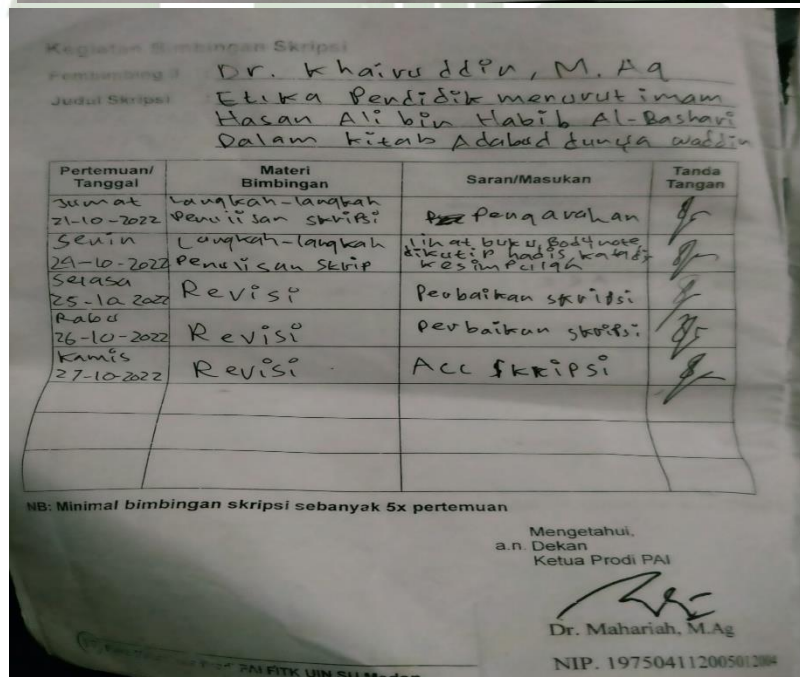 Kegiatan Bimbingan Skripsi
Pembimbing
Dr. Khairuddin, M. Ag
Judul Skripsi
Etika Pendidik menurut imam
Hasan Ali bin Habib Al-Bashari
Dalam kitab Adabud dunya waddin
Pertemuan/ Tanggal
Materi Bimbingan
Saran/Masukan
Tanda Tangan
Jumat 21-10-2022
Langkah-langkah Penulisan skripsi
Pengarahan
Senin 24-10-2022
Langkah-langkah Penulisan Skrip
lihat buku, Bodynote dikutip hadis, kesimpulan
Selasa 25-10 2022
Revisi
Perbaikan skripsi
Rabu 26-10-2022
Revisi
Perbaikan skripsi
Kamis 27-10-2022
Revisi
Acc SKRIPSI
NB: Minimal bimbingan skripsi sebanyak 5x pertemuan
Mengetahui,
a.n. Dekan
Ketua Prodi PAI
Dr. Mahariah, M.Ag
NIP. 19750411200501
PAI FITK UIN SU Medan